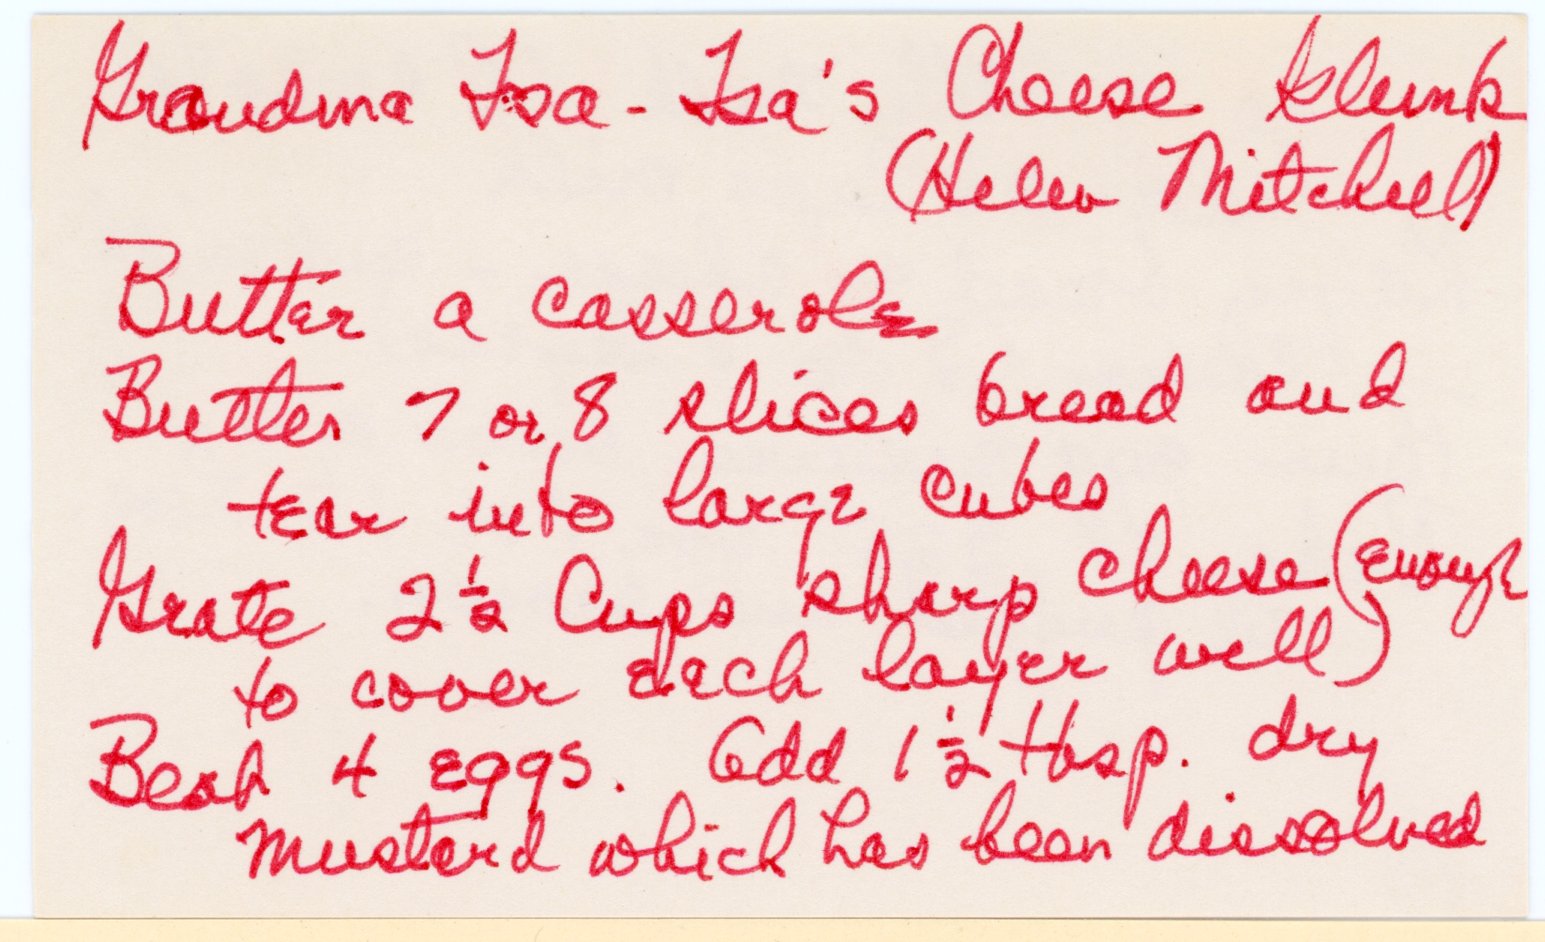 Grandma Isa-Isa's Cheese Glunk
(Helen Mitchell)
Butter a casserole
Butter 7 or 8 slices bread and
tear into large cubes
Grate 2 ½ Cups sharp cheese (enough
to cover each layer well)
Beat 4 eggs. Add 1 ½ tbsp. dry
mustard which has been dissolved